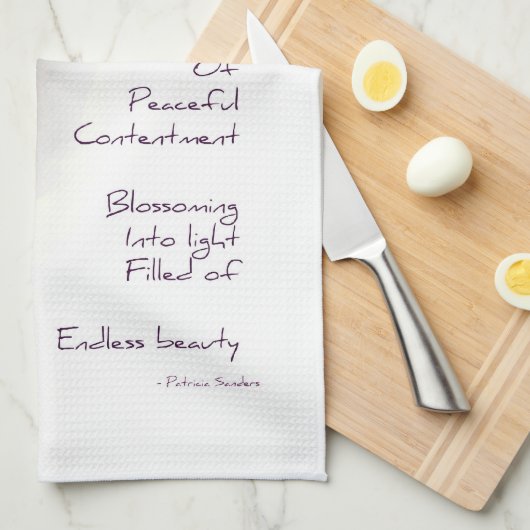 Of
Peaceful
Contentment
Blossoming
Into light
Filled of
Endless beauty
- Patricia Sanders